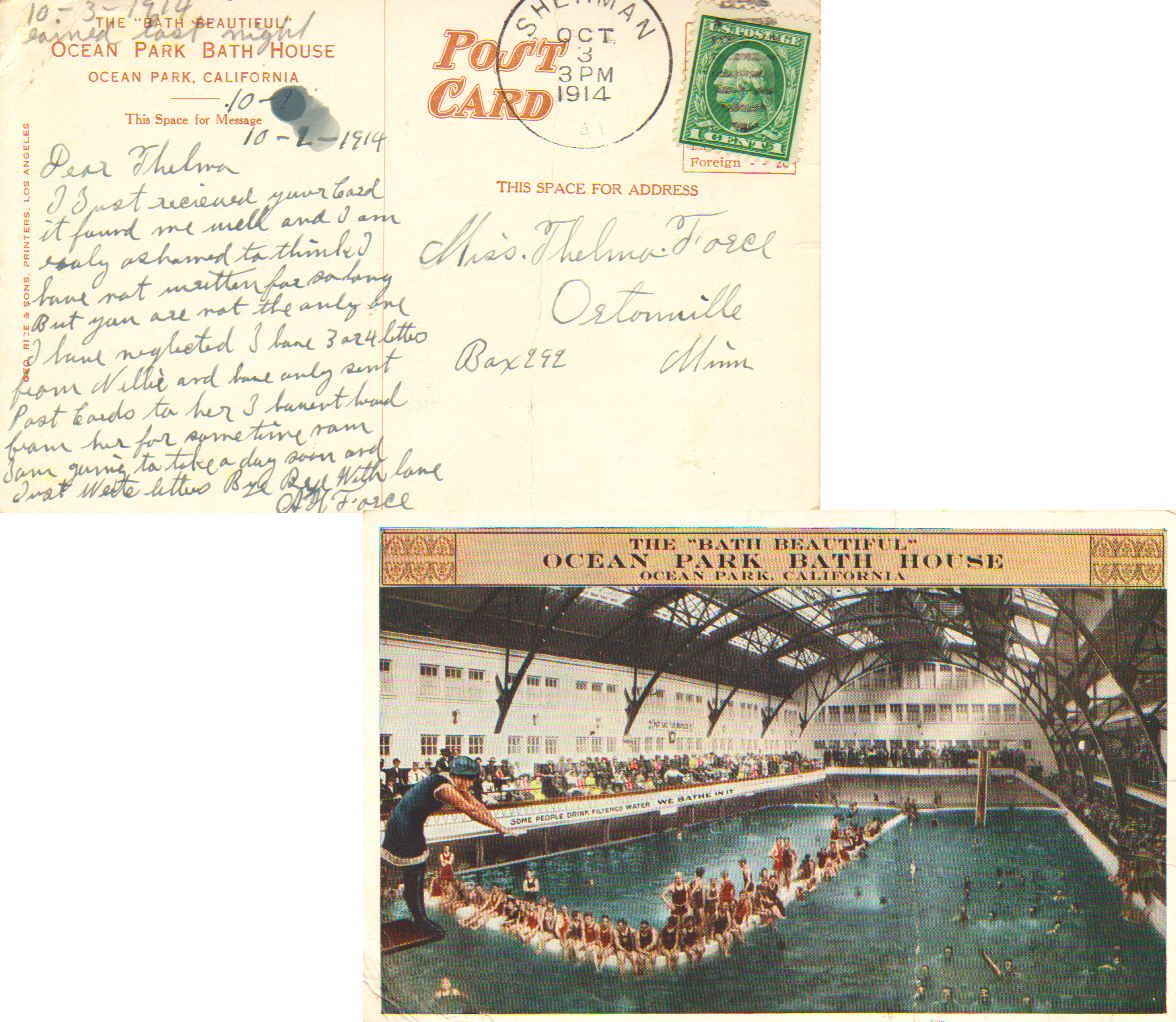 10-3-1914
rained last night
THE "BATH BEAUTIFUL"
OCEAN PARK BATH HOUSE
OCEAN PARK, CALIFORNIA
This Space for Message
10-2-1914
Dear Thelma
I Just recieved your Card
it found me well and I am
realy ashamed to think I
have not written for so long
But you are not the only one
I have neglected I have 3 or 4 letters
from Nellie and have only sent
Post Cards to her I havent heard
from her for sometime
I am going to take a day soon and
Just Write letters Bye Bye With love
Force
GEO. RICE & SONS, PRINTERS, LOS ANGELES
POST
CARD
SHERMAN
OCT
3
3 PM
1914
U.S. POSTAGE
1 CENT 1
Foreign
THIS SPACE FOR ADDRESS
Miss. Thelma. Force
Ortonville
Box 292 Minn
THE "BATH BEAUTIFUL"
OCEAN PARK BATH HOUSE
OCEAN PARK, CALIFORNIA
SOME PEOPLE DRINK FILTERED WATER WE BATHE IN IT